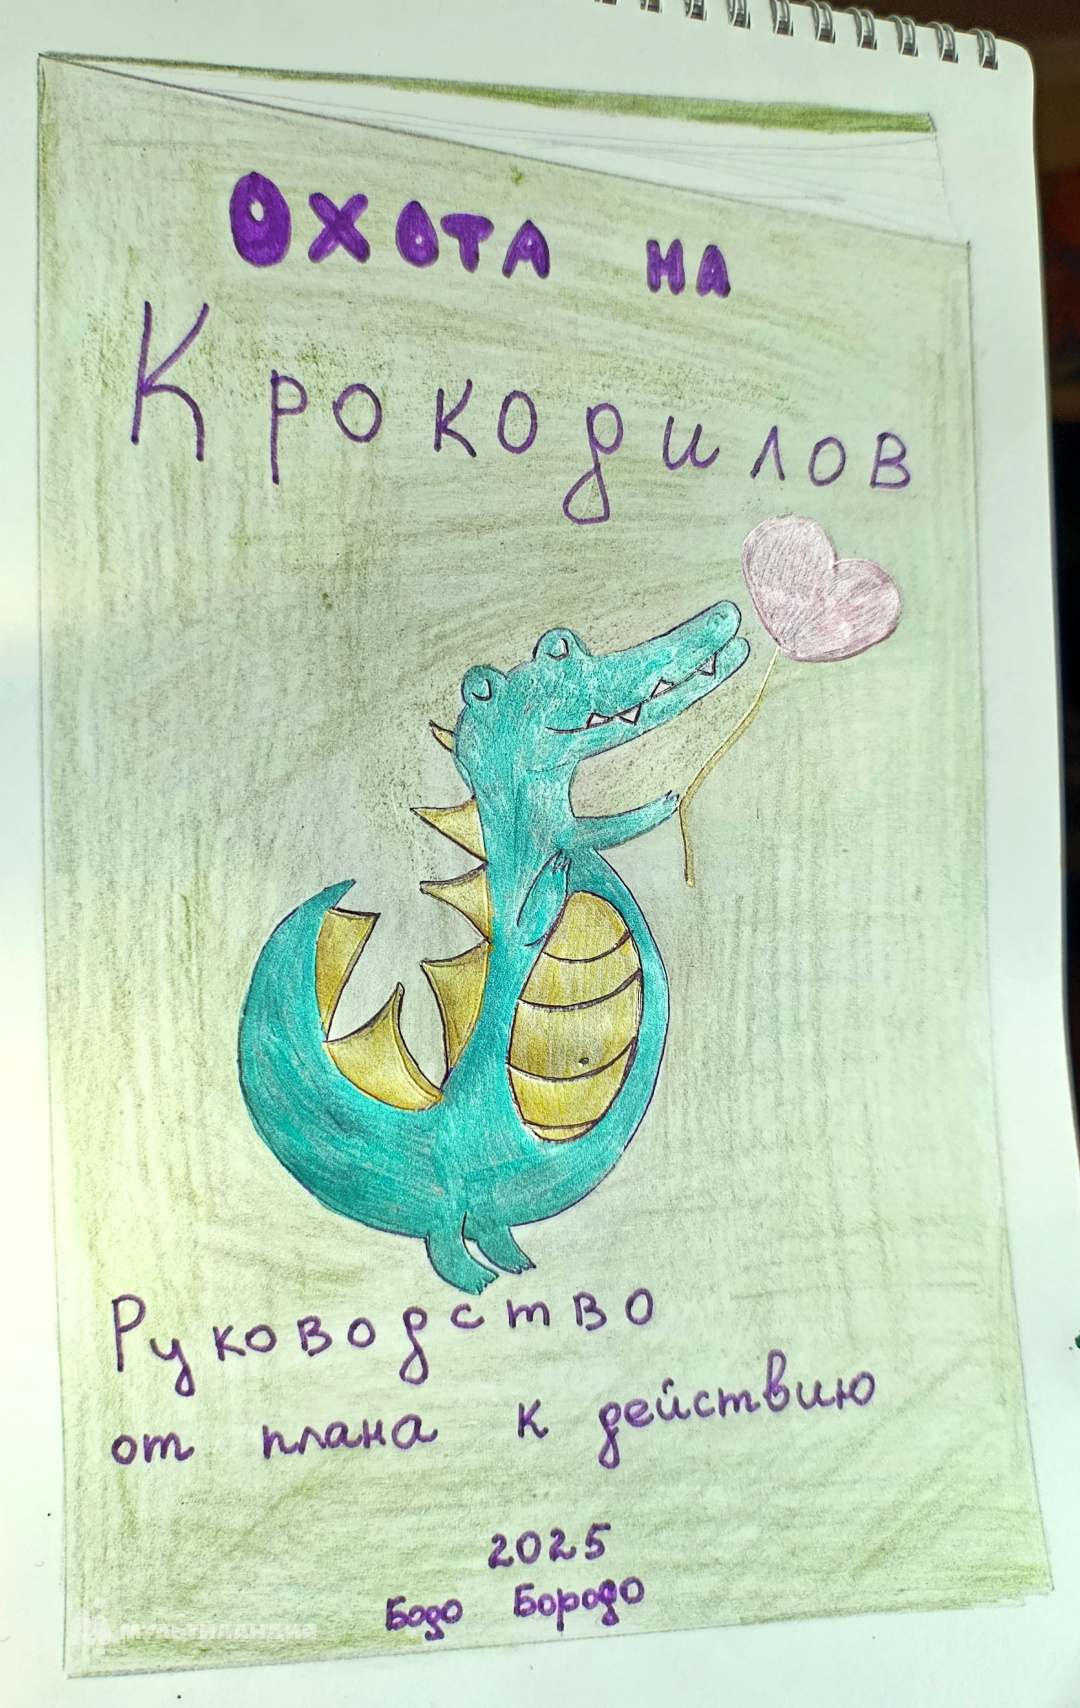 Охота на
Крокодилов
Руководство
от плана к действию
2025
Бодо Бородо
мультиландия